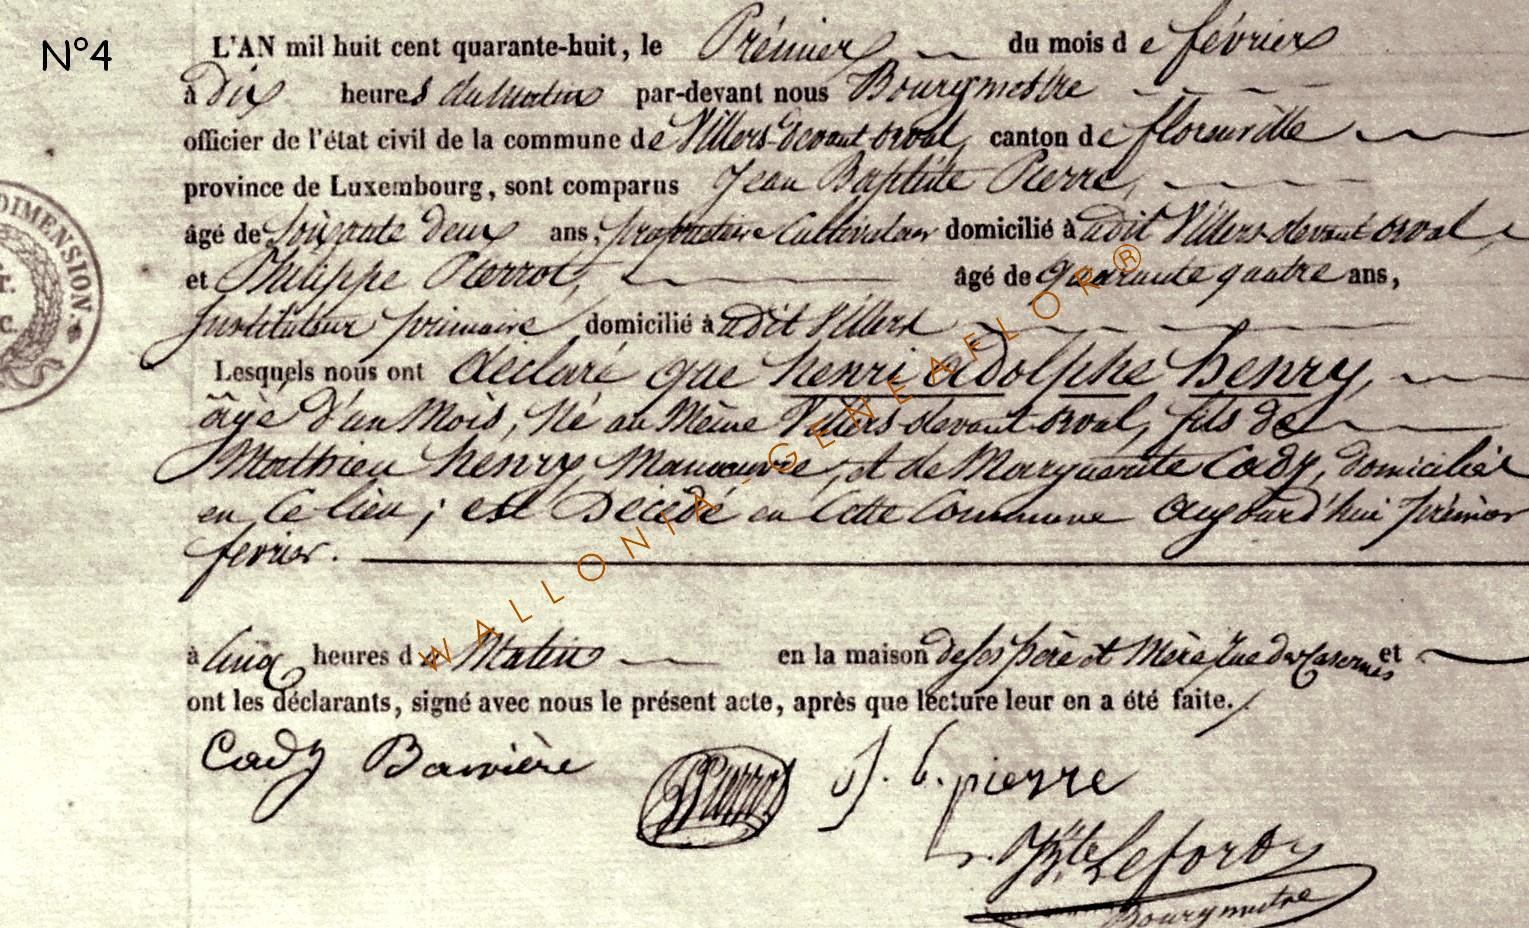 N°4
L'AN mil huit cent quarante-huit, le Prémier du mois d e février
à Dix heures du Matin par-devant nous Bourgmestre
officier de l'état civil de la commune de Villers-devant-orval, canton de florenville
province de Luxembourg, sont comparus Jean Baptiste Pierre,
âgé de soixante deux ans, propriétaire Cultivateur domicilié à audit Villers-devant-orval
et Philippe Pierrot, âgé de quarante quatre ans,
Instituteur primaire domicilié à audit Villers
Lesquels nous ont déclaré que henri adolphe henry,
âgé d'un Mois, Né au Même Villers-devant-orval, fils de
Mathieu henry, Manœuvre, et de Marguerite Cady, domiciliés
en ce lieu ; est Décédé en cette Commune aujourd'hui prémier
fevrier.
à Cinq heures du Matin en la maison de ses père et Mère, rue des Casernes et
ont les déclarants, signé avec nous le présent acte, après que lecture leur en a été faite.
Cady Barrière Pierrot J. b. pierre
J. Bte Lefort
Bourgmestre
DIMENSION.
WALLONIA-GENEAFLOR®